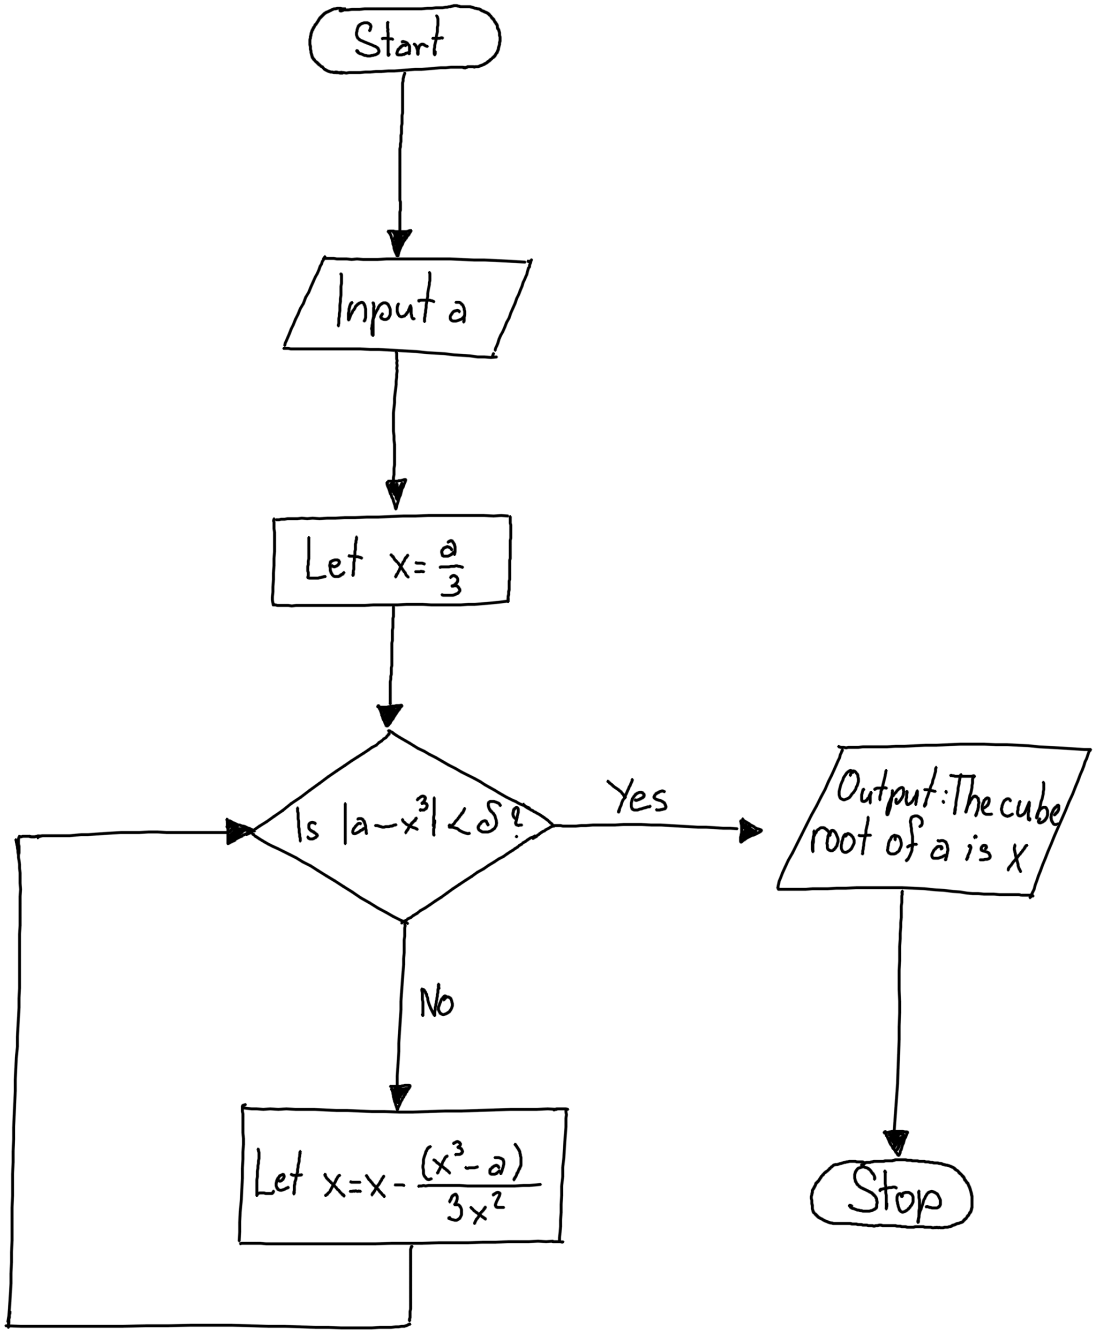 Start
Input a
Let x = a/3
Is |a-x³| < δ?
Yes
Output: The cube
root of a is x
No
Let x = x - (x³-a)/3x²
Stop